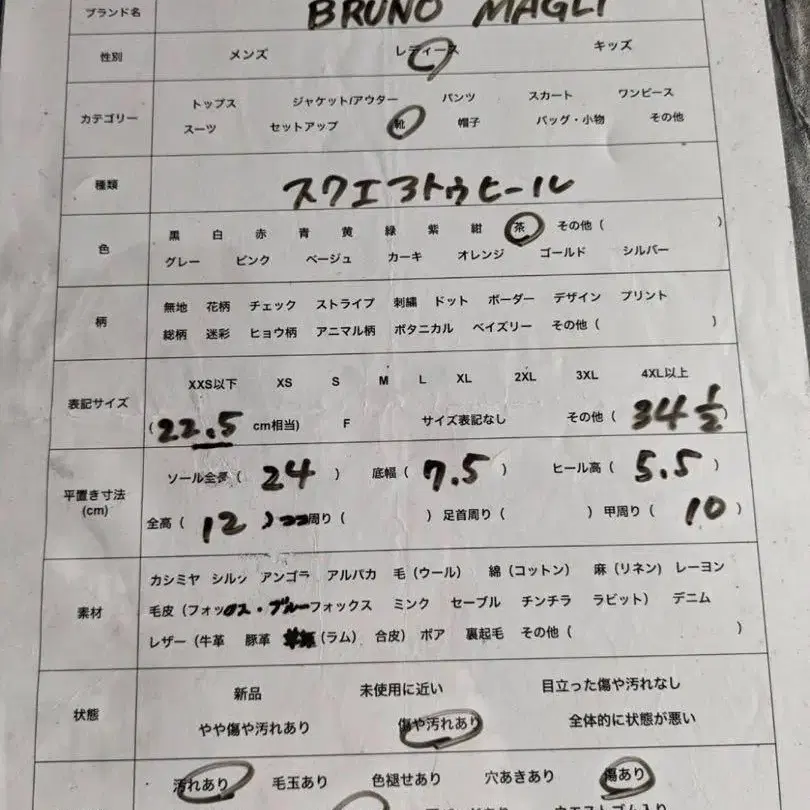 ブランド名 BRUNO MAGLI
性別 メンズ レディース キッズ
カテゴリー トップス ジャケット/アウター パンツ スカート ワンピース
スーツ セットアップ 靴 帽子 バッグ・小物 その他
種類 スクエアトゥヒール
色 黒 白 赤 青 黄 緑 紫 紺 茶 その他( )
グレー ピンク ベージュ カーキ オレンジ ゴールド シルバー
柄 無地 花柄 チェック ストライプ 刺繍 ドット ボーダー デザイン プリント
総柄 迷彩 ヒョウ柄 アニマル柄 ボタニカル ペイズリー その他( )
表記サイズ XXS以下 XS S M L XL 2XL 3XL 4XL以上
(22.5 cm相当) F サイズ表記なし その他( 34 1/2 )
平置き寸法 (cm) ソール全長( 24 ) 底幅( 7.5 ) ヒール高( 5.5 )
全高( 12 ) 周り( ) 足首周り( ) 甲周り( 10 )
素材 カシミヤ シルク アンゴラ アルパカ 毛(ウール) 綿(コットン) 麻(リネン) レーヨン
毛皮(フォックス・ブルーフォックス ミンク セーブル チンチラ ラビット) デニム
レザー(牛革 豚革 (ラム) 合皮) ボア 裏起毛 その他( )
状態 新品 未使用に近い 目立った傷や汚れなし
やや傷や汚れあり 傷や汚れあり 全体的に状態が悪い
汚れあり 毛玉あり 色褪せあり 穴あきあり 傷あり